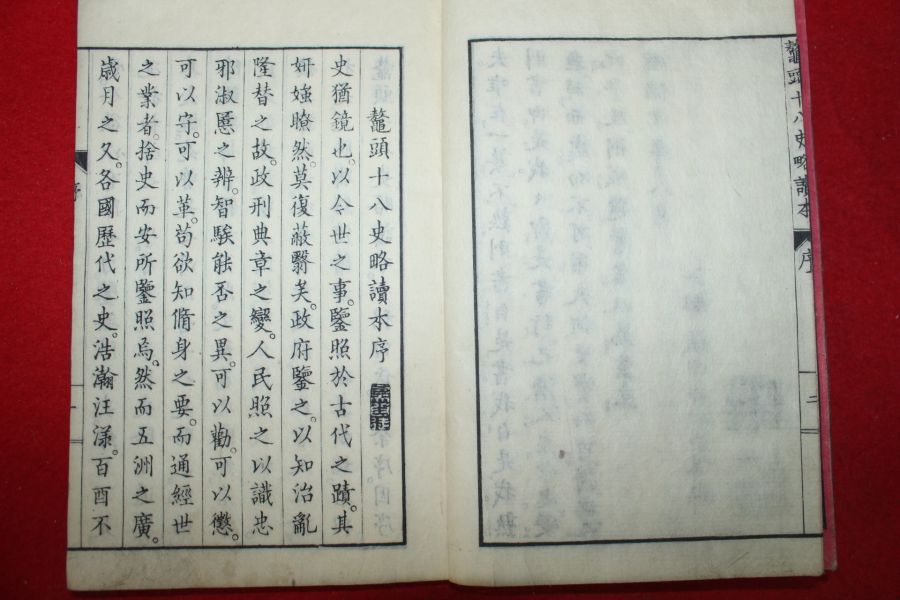 鼇頭十八史略讀本 序 二
鼇頭十八史略讀本序
史猶鏡也。以今世之事。鑒照於古代之蹟。其
妍媸瞭然。莫復蔽翳矣。政府鑒之。以知治亂
隆替之故。政刑典章之變。人民照之以識忠
邪淑慝之辨。智騃能否之異。可以勸。可以懲。
可以守。可以革。苟欲知脩身之要。而通經世
之業者。捨史而安所鑒照焉。然而五洲之廣。
歲月之久。各國歷代之史。浩瀚汪漾。百酉不
序 一